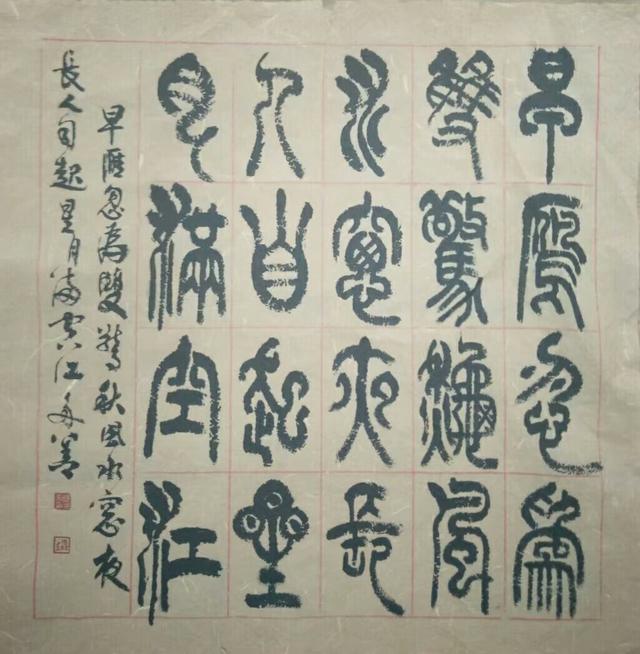 早雁忽爲
雙驚秋風
水窗夜長
人自起星
月滿空江
早雁忽為雙驚秋風水窗夜
長人自起星月滿空江